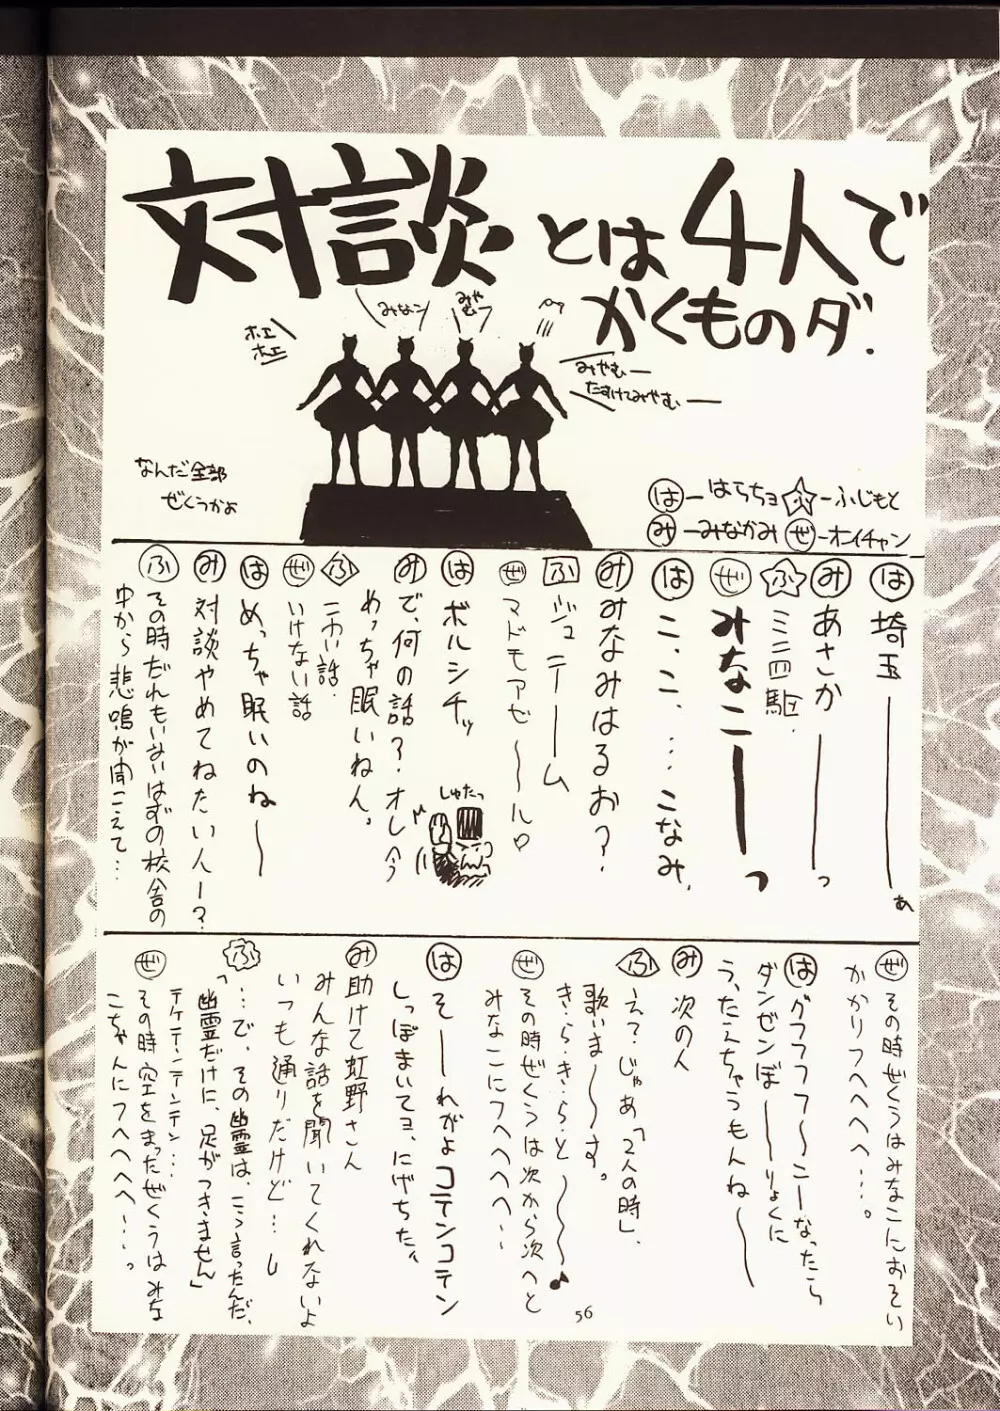 対談とは4人で
かくものダ.
みなン
みやむっ
ホエ
ホエ
みやむー
たすけてみやむー
なんだ全部
ぜくうかよ
は-はらちョ ふ-ふじもと
み-みなかみ ぜ-オイチャン
は 埼玉―――ぁ
み あさか―――っ
ふ ミニ四駆.
ぜ みなこ―――っ
は こ、こ、…こなみ.
み みなみはるお?
ふ ジュテーーム
ぜ マドモアゼ〜〜ル
は ボルシチッ
み で、何の話?オレ今
めっちゃ眠いねん。
ふ こわい話.
ぜ いけない話
は めっちゃ眠いのね〜
み 対談やめてねたい人ー?
ふ その時だれもいないはずの校舎の
中から悲鳴が聞こえて…
しゅたっ
ぜ その時ぜくうはみなこにおそい
かかりフヘヘヘヘ…。
は グフフフフ〜こーなったら
ダンゼンぼ――りょくに
うったえちゃうもんね〜〜
み 次の人
ふ え?じゃあ「2人の時」、
歌いま〜〜す。
き・ら・き・ら・と〜〜♪
ぜ その時ぜくうは次から次へと
みなこにフヘヘヘヘ…
は そ――れがよコテンコテン
しっぽまいてョ、にげちたィ
み 助けて虹野さん
みんな話を聞いてくれないよ
いつも通りだけど…し
ふ 「…で、その幽霊は、こう言ったんだ、
幽霊だけに、足がつきません」
テケテンテンテン…
ぜ その時空をまったぜくうはみな
こちゃんにフヘヘヘヘ…。
56